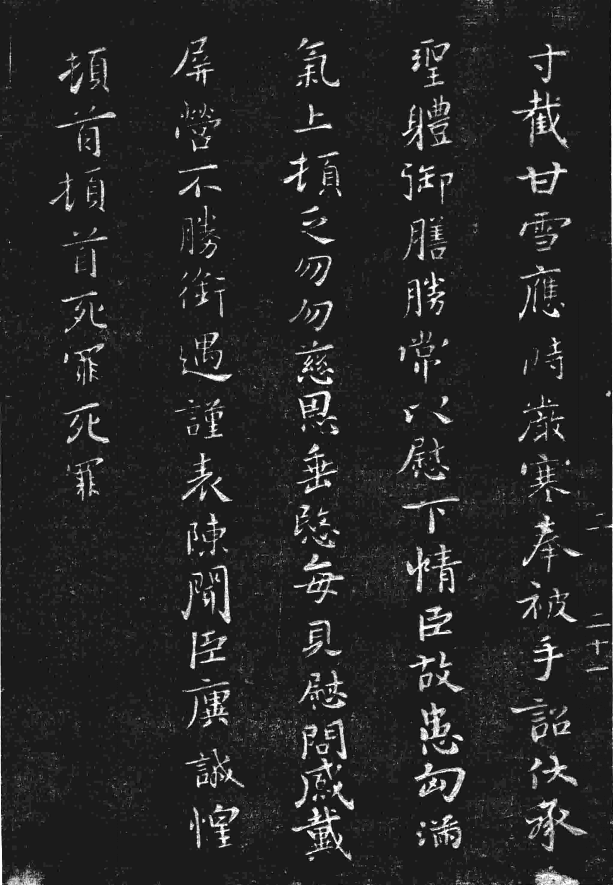 寸截甘雪應時嚴寒奉被手詔伏承
聖體御膳勝常以慰下情臣故患匈滿
氣上頓乏勿勿慈恩垂愍每見慰問感戴
屏營不勝銜遇謹表陳聞臣廙誠惶
頓首頓首死罪死罪
二
二十一